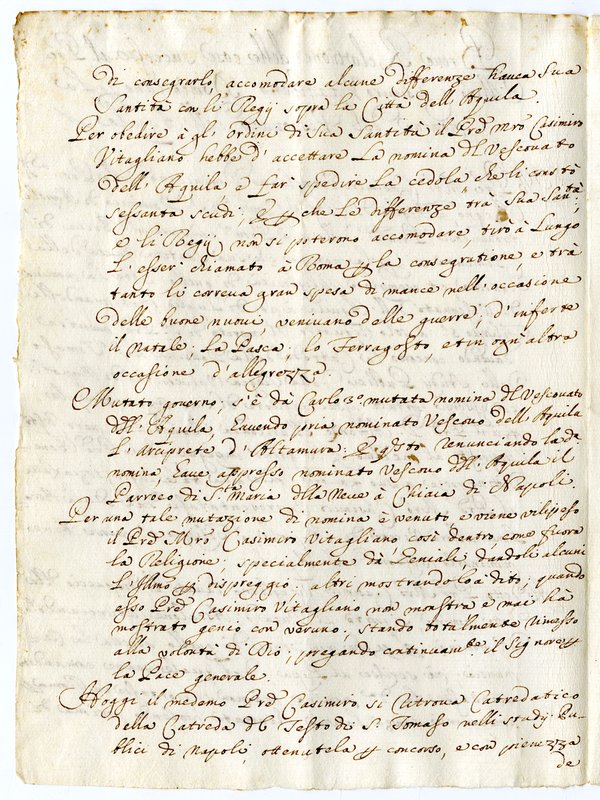 di consegrarlo, accomodare alcune differenze havea Sua
Santità con li Regij sopra la Città dell'Aquila.
Per obedire à gl'ordini di Sua Santità il Pre Mro Casimiro
Vitagliano hebbe d'accettare la nomina del Vescovato
dell'Aquila e far spedire la cedola che li costò
sessanta scudi; e che le differenze trà Sua Santà,
e li Regij non si poterono accomodare, tirò à lungo
l'esser chiamato à Roma la consegratione, e trà
tanto li correva gran spesa di mance nell'occasione
delle buone nuove venivano delle guerre; d'inferte
il Natale, la Pasca, lo Ferragosto, et in ogn'altra
occasione d'allegrezza.
Mutato governo, s'è dà Carlo 3º mutata nomina del Vescovato
dell'Aquila, havendo pria nominato Vescovo dell'Aquila
l'arciprete d'Altamura: e renunciando la da
nomina, have appresso nominato Vescovo dell'Aquila il
Parroco di Sta Maria della Neve à Chiaia di Napoli
Per una tale mutazione di nomina è venuto e viene vilipeso
il Pre Mro Casimiro Vitagliano, così dentro, come fuora
la Religione; specialmente dà Geniali, dandoli alcuni
l'Illmo dispreggio; altri mostrandolo à dito; quando
esso Pre Casimiro Vitagliano non monstra e mai ha
mostrato genio con veruno, stando totalmente rimesso
alla volontà di Dio; pregando continuamte il Signore
la Pace generale.
Hoggi il medemo Pre Casimiro si ritrova Catredatico
della Catreda del Testo di S. Tomaso nelli studij Pu-
blici di Napoli, ottenutela concorso, e con pienezza
de